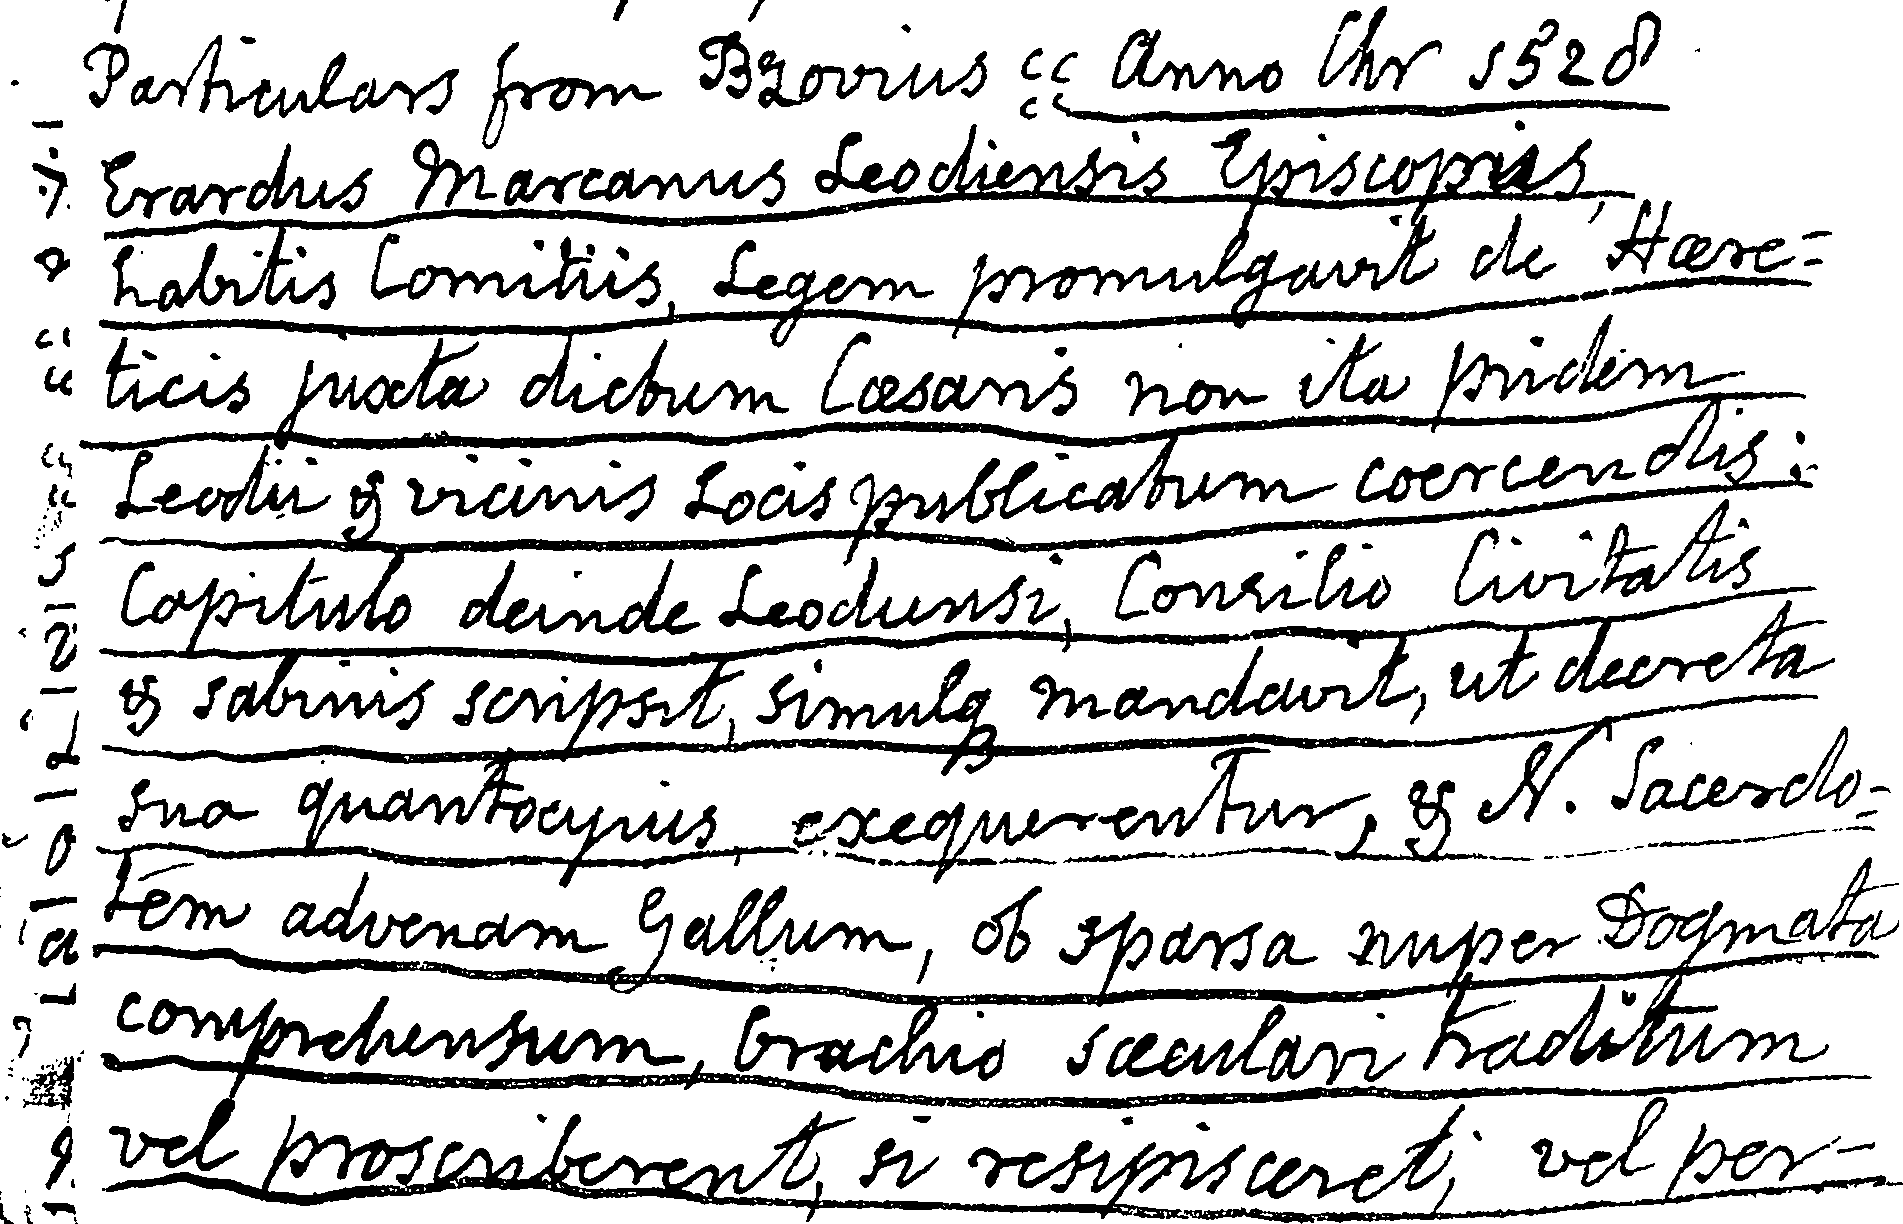 Particulars from Bzovius “ Anno Chr 1528
Erardus Marcanus Leodiensis Episcopus,
habitis Comitiis, Legem promulgavit de Hære=
ticis juxta dictum Cæsaris non ita pridem
Leodii & vicinis Locis publicatum coercendis:
Capitulo deinde Leodiensi, Consilio Civitatis
& sabinis scripsit, simulq mandavit, ut decreta
sua quantocyius, exequerentur, & N. Sacerdo=
tem advenam Gallum, ob sparsa nuper Dogmata
comprehensum, brachio sæculari traditum
vel proscriberent, si resipisceret, vel per-